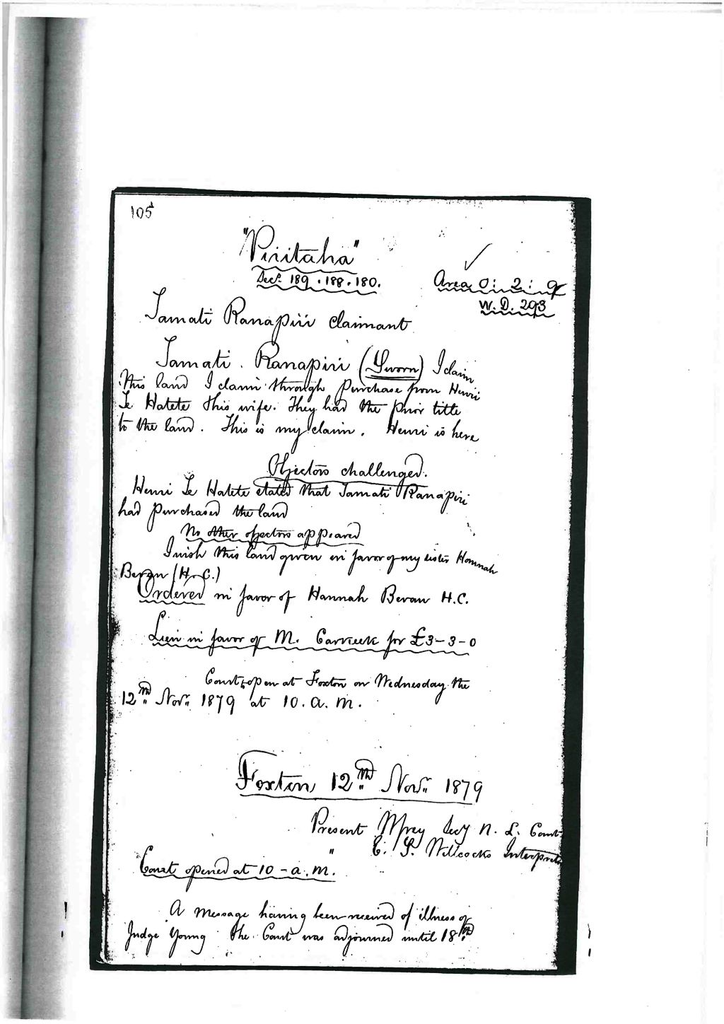 105
"Piritaha"
Secs. 189 . 188 . 180.
Area 0 : 2 : 9
W. D. 293
Tamati Ranapiri claimant
Tamati . Ranapiri (Sworn) I claim
this land I claim through purchase from Henri
Te Hatete & his wife. They had the prior title
to the land . This is my claim . Henri is here
Objectors challenged.
Henri Te Hatete stated that Tamati Ranapiri
had purchased the land
No other objectors appeared
I wish this land given in favor of my sister Hannah
Bevan (H. C.)
Ordered in favor of Hannah Bevan H.C.
Lien in favor of M. Carkeek for £3-3-0
Court to open at Foxton on Wednesday the
12th Nov: 1879 at 10. a. m.
Foxton 12th Nov: 1879
Present Secy N. L. Court
" E. S. Willcocks Interpreter
Court opened at 10 - a. m.
A message having been received of illness of
Judge Young the Court was adjourned until 18th